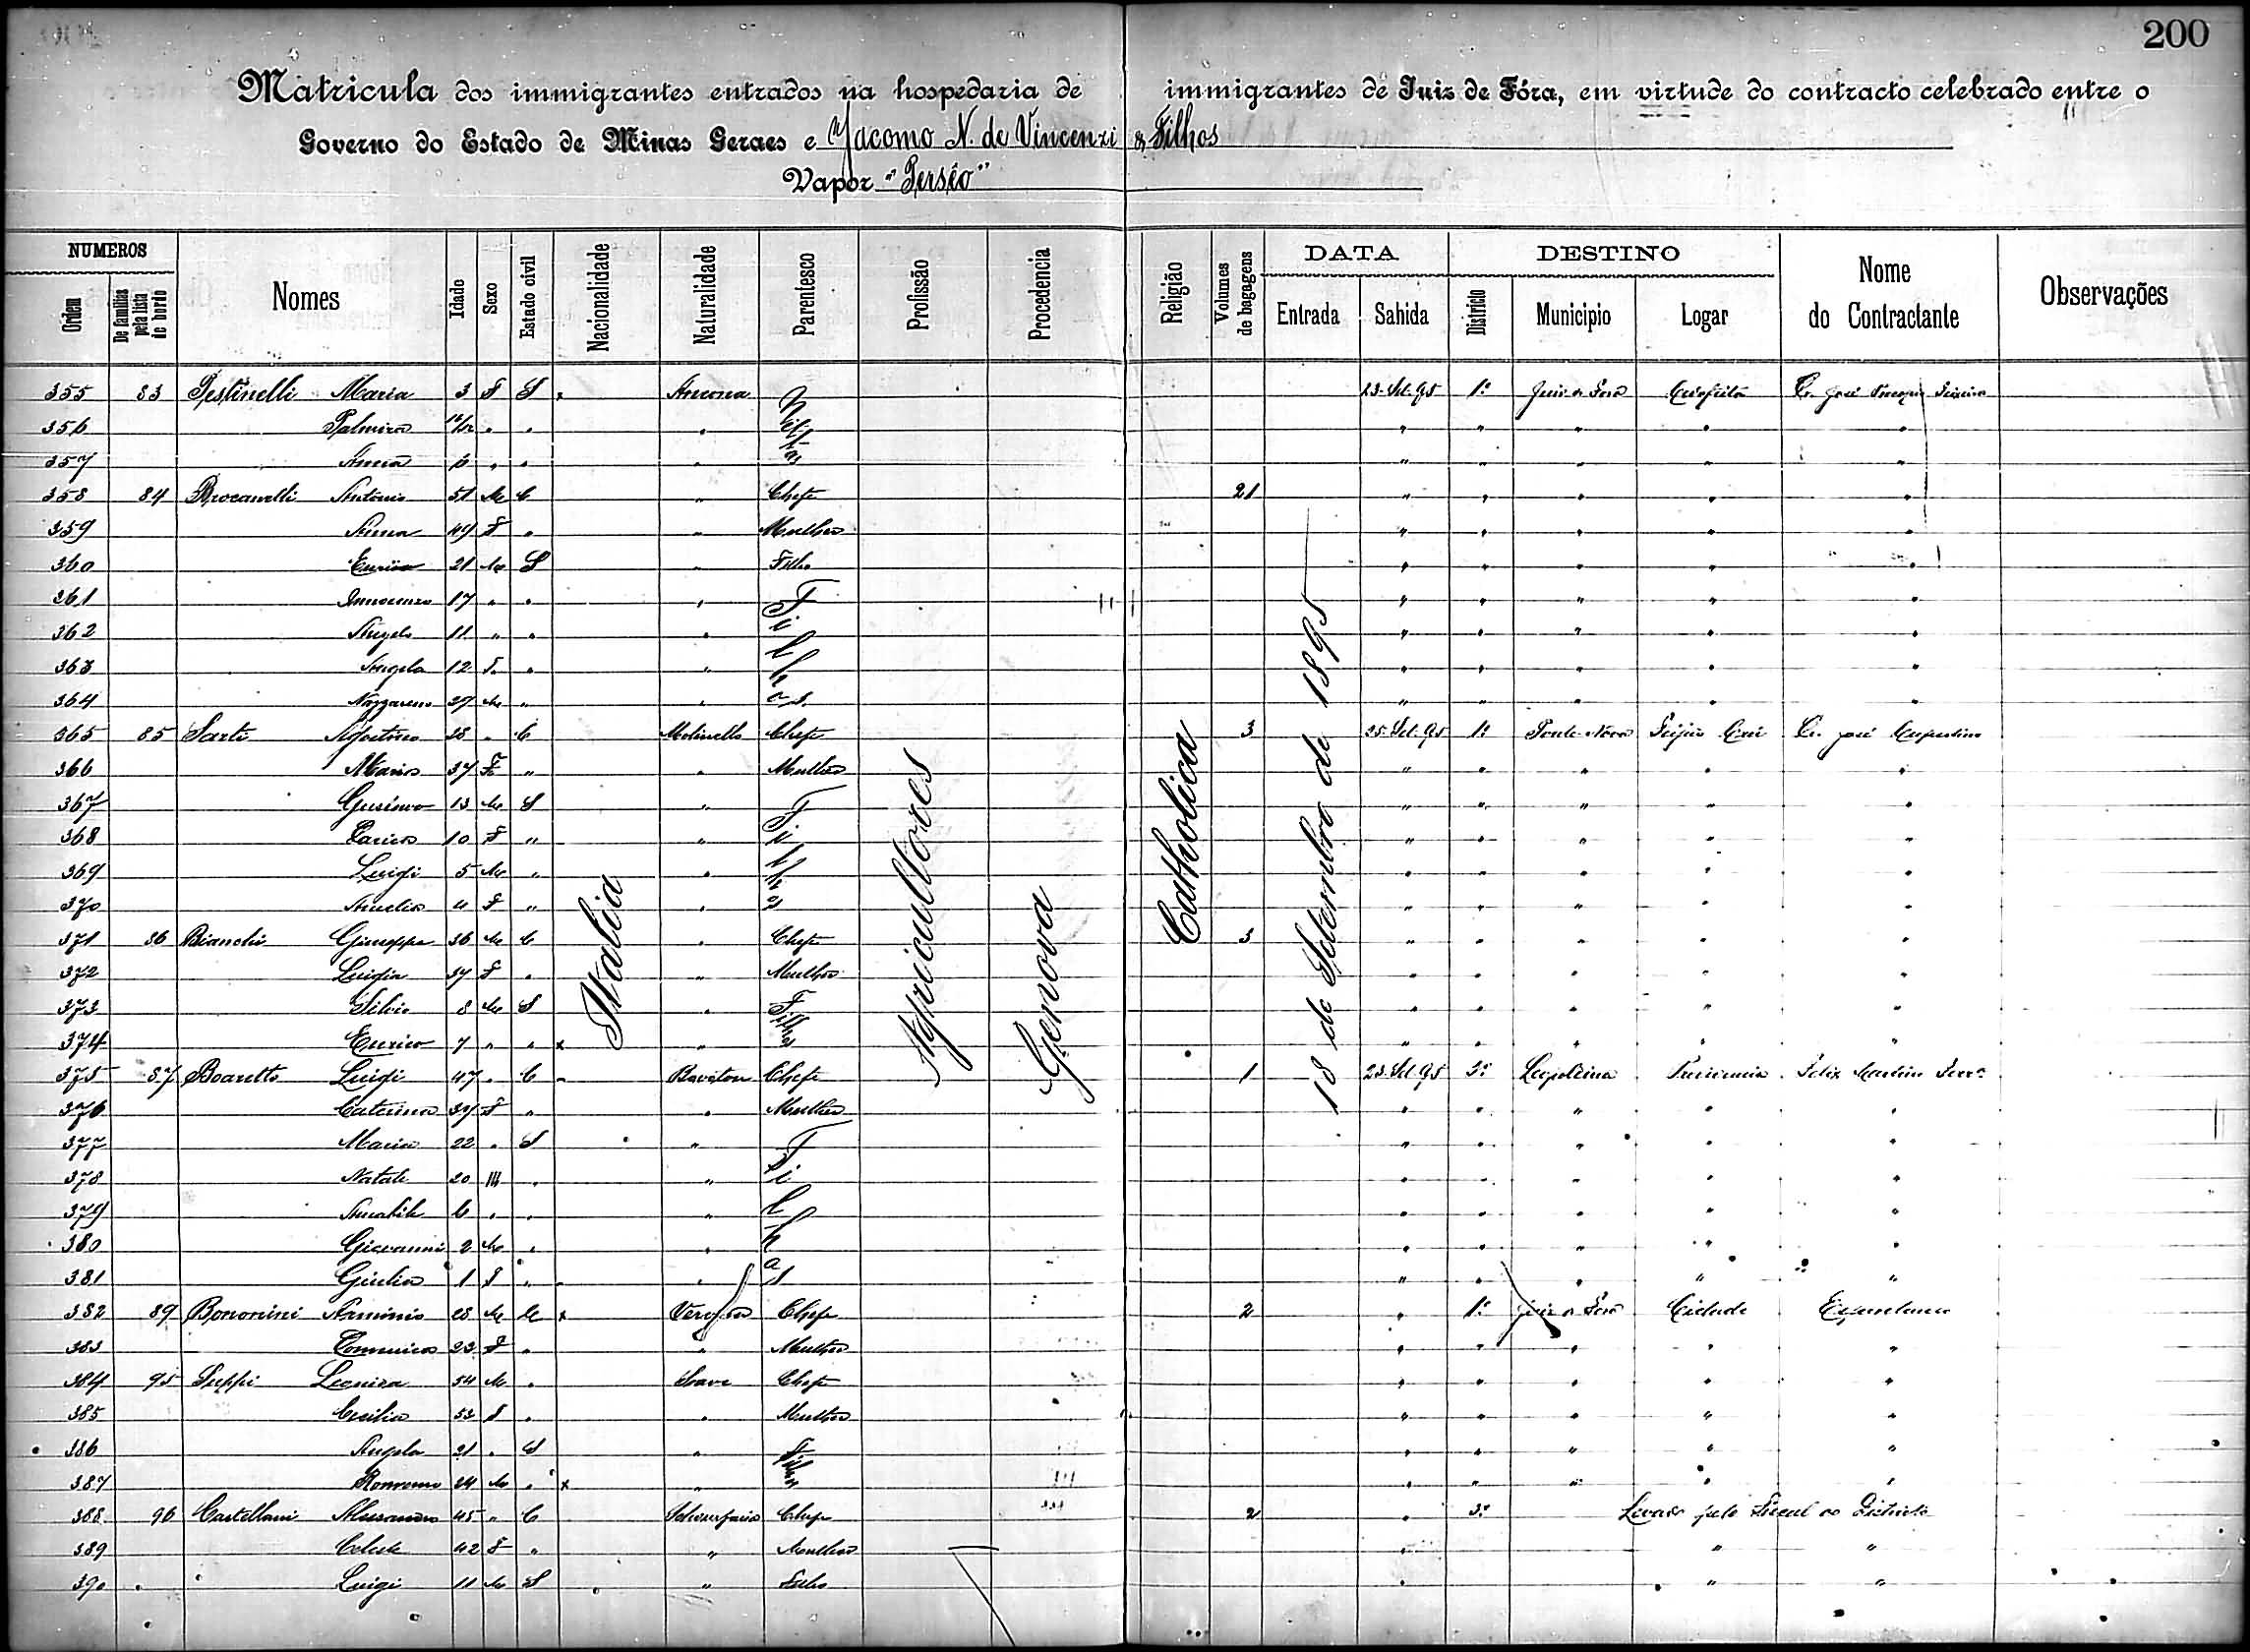 200
Matricula dos immigrantes entrados na hospedaria de immigrantes de Juiz de Fóra, em virtude do contracto celebrado entre o
Governo do Estado de Minas Geraes e Jacomo N. de Vincenzi & Filhos
Vapor "Persêo"
NUMEROS Nomes Idade Sexo Estado civil Nacionalidade Naturalidade Parentesco Profissão Procedencia Religião Volumes de bagagens DATA DESTINO Nome do Contractante Observações
Ordem De familias pela lista de bordo Entrada Sahida Districto Municipio Logar
Italia Agricultores Genova Catholica 18 de Setembro de 1895
355 83 Pestinelli Maria 3 F S Ancona Netas 23 Set. 95 1º Juiz de Fora
356 Palmira " " " " " " " "
357 " " " " " " " "
358 84 Brocanelli Antonio 51 M C " Chefe 21 " " " " "
359 49 F " " Mulher " " " " "
360 21 M S " Filho " " " " "
361 Innocenzo 17 " " " Filhos " " " " "
362 Angelo 11 " " " " " " " "
363 Angela 12 F " " " " " " "
364 Nazzareno 27 M " " " " " " "
365 85 Sarti Agostino 38 " C Molinella Chefe 3 25 Set. 95 1º Ponte Nova
366 Maria 37 F " " Mulher " " " " "
367 13 M S " Filhos " " " " "
368 10 F " " " " " " "
369 Luigi 5 M " " " " " " "
370 Amelia 4 F " " " " " " "
371 86 Bianchi Giuseppe 36 M C " Chefe 3 " " " " "
372 Luigia 34 F " " Mulher " " " " "
373 Silvio 8 M S " Filhos " " " " "
374 Enrico 7 " " x " " " " " "
375 87 Boaretto Luigi 47 " C Chefe 1 23 Set. 95 3º Leopoldina Providencia Felix Martins Ferrª
376 Caterina 37 F " " Mulher " " " " "
377 Maria 22 " S " Filhas " " " " "
378 Natale 20 M " " " " " " "
379 Amabile 6 " " " " " " " "
380 Giovanni 2 M " " " " " " "
381 Giulia 1 F " " " " " " "
382 89 Bononini Arminio 28 M C x Verona Chefe 2 " 1º Juiz de Fora Cidade
383 23 F " " Mulher " " " " "
384 95 Leonira 54 M " Soave Chefe " " " " "
385 Cecilia 53 F " " Mulher " " " " "
386 Angela 21 " S " Filhos " " " " "
387 24 M " x " " " " " "
388 96 Castellani 45 " C Chefe 2 " 3º Levado pelo Fiscal do Districto
389 Celeste 42 F " " Mulher " " "
390 Luigi 11 M S " Filho " " "